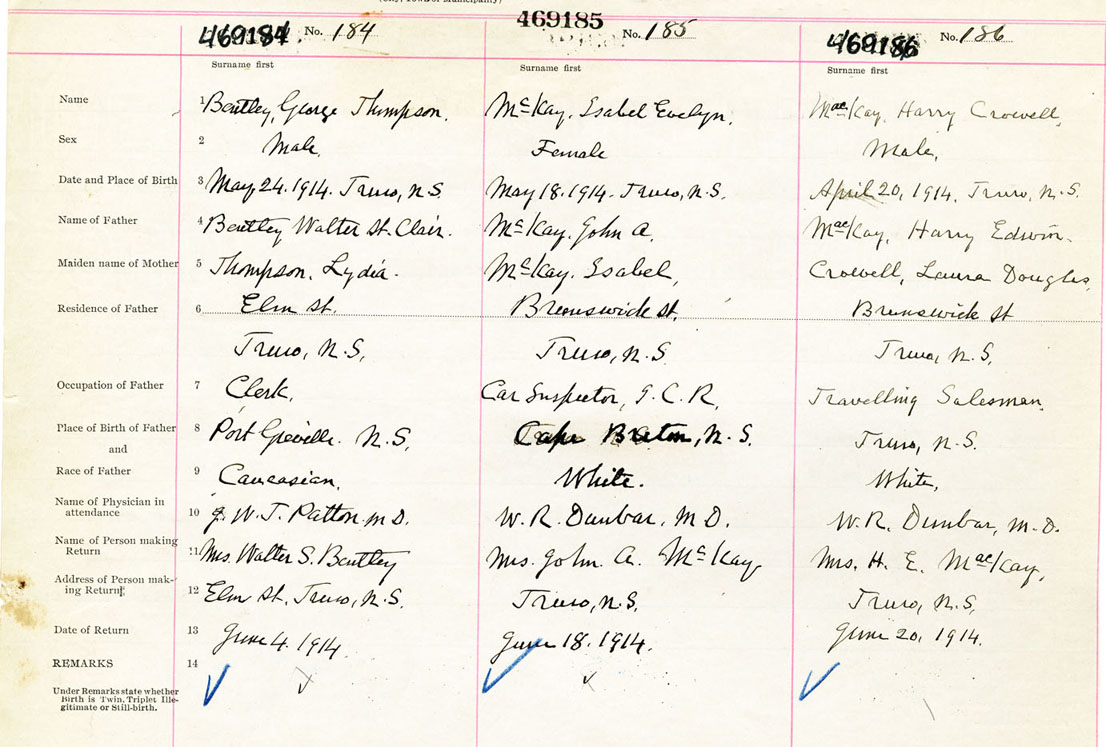 469184 No. 184 469185 No. 185 469186 No. 186
Surname first Surname first Surname first
Name 1 Bentley, George Thompson. McKay, Isabel Evelyn. MacKay, Harry Crowell,
Sex 2 Male, Female Male,
Date and Place of Birth 3 May 24. 1914. Truro, N.S. May 18. 1914. Truro, N.S. April 20, 1914, Truro, N.S.
Name of Father 4 Bentley Walter St. Clair. McKay, John A. MacKay, Harry Edwin.
Maiden name of Mother 5 Thompson, Lydia. McKay, Isabel, Crowell, Laura Douglas,
Residence of Father 6 Elm St. Brunswick St. Brunswick St
Truro, N.S, Truro, N.S Truro, N.S,
Occupation of Father 7 Clerk, Car Inspector, I.C.R, Travelling Salesman,
Place of Birth of Father 8 Port Greville. N.S, Cape Breton, N.S. Truro, N.S.
and
Race of Father 9 Caucasian. White. White,
Name of Physician in
attendance 10 W. T. Patton M.D. W. R. Dunbar, M.D. W. R. Dunbar, M.D.
Name of Person making
Return 11 Mrs. Walter S. Bentley Mrs. John A. McKay, Mrs. H. E. MacKay,
Address of Person mak-
ing Return 12 Elm St, Truro, N.S. Truro, N.S. Truro, N.S,
Date of Return 13 June 4. 1914. June 18. 1914. June 20, 1914.
REMARKS 14
Under Remarks state whether
Birth is Twin, Triplet Ille-
gitimate or Still-birth.